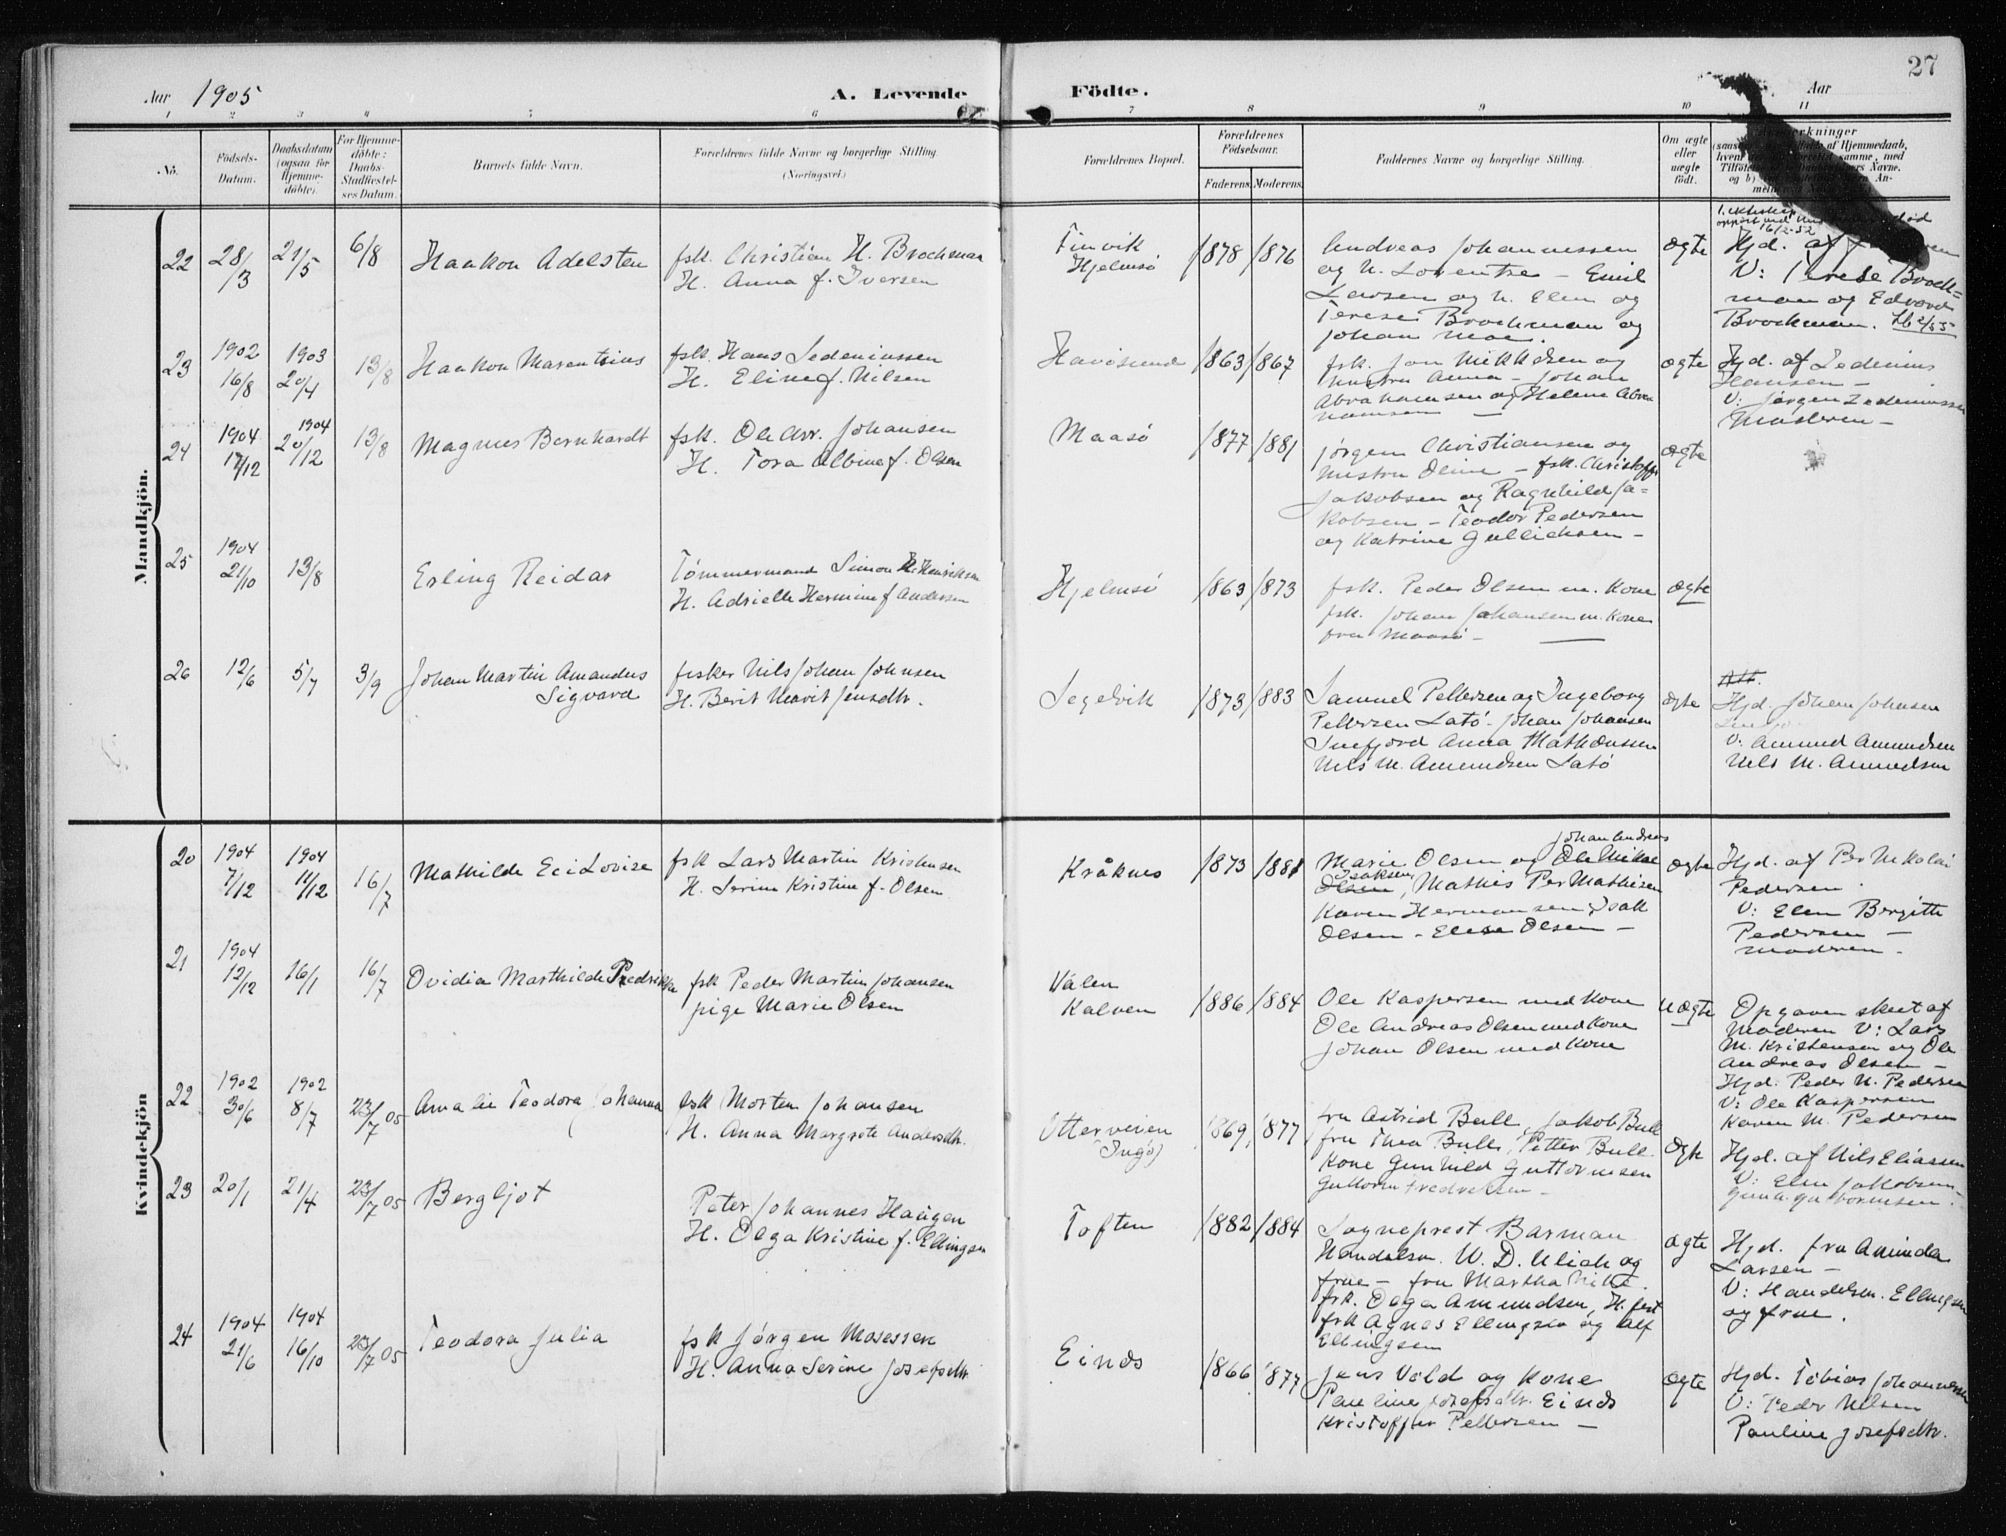 27
Aar 1905 A. Levende Födte. Aar
1 2 3 4 5 6 7 8 9 10 11
No.
Födsels-Datum.
Daabsdatum (ogsaa for Hjemmedöbte).
For Hjemmedöbte: Daabs-Stadfæstelses Datum.
Barnets fulde Navn.
Forældrenes fulde Navne og borgerlige Stilling.
(Næringsvei.)
Forældrenes Bopæl.
Forældrenes Födselsaar.
Faderens. Moderens.
Faddernes Navne og borgerlige Stilling.
Om ægte eller uægte födt.
Mandkjön.
22 28/3 21/5 6/8 Haakon Adelsten
fsk. Christian H. Brochman
H. Anna f. Iversen
Finvik
Hjelmsö
1878 1876
Andreas Johannessen
og H. Lorentse – Emil
Larsen og H. Elen og
Terese Brochman og
Johan Moe.
ægte
Hjd. af
V: Terese Broch-
man og Edvard
Brochman.
23 1902 16/8 1903 20/4 13/8 Haakon Marentsius
fsk. Hans Sedeniussen
H. Eline f. Nilsen
Havösund
1863 1867
fsk. Jon Mikkelsen og
hustru Anna – Johan
Abrahamsen og Helene Abra
hamsen –
ægte
Hjd. af Zedenius
Hansen –
V: Jørgen Zedeniussen
Moderen –
24 1904 17/12 1904 20/12 13/8 Magnus Bernhardt
fsk. Ole Arr. Johansen
H. Tora Albine f. Olsen
Maasö
1877 1881
Jørgen Christiansen og
hustru Oline – fsk. Christoffer
Jakobsen og Ragnhild Ja-
kobsen – Teodor Pedersen
og Katrine Gullichsen –
ægte
25 1904 21/10 13/8 Erling Reidar
Tømmermand Simon H. Henriksen
H. Adrielle Hermine f Andersen
Hjelmsö
1863 1873
fsk. Peder Olsen m. Kone
fsk. Johan Johansen m. Kone
fra Maasö –
ægte
26 12/6 5/7 3/9 Johan Martin Amandus
Sigvard
fisker Nils Johan Johnsen
H. Berit Marit Jensdtr.
Segelvik
1873 1883
Samuel Pettersen og Ingeborg
Pettersen Latö. Johan Johansen
Snefjord Anna Mathæussen
Nils M. Amundsen Latö
ægte
Hjd. Johan Johnsen
V: Amund Amundsen
Nils M. Amundsen
Kvindekjön
20 1904 7/12 1904 11/12 16/7 Mathilde Eli Lovise
fsk Lars Martin Kristensen
H. Serine Kristine f. Olsen
Kråknes
1873 1881
Johan Andreas
Marie Olsen og Ole Mikal
Isaksen
Olsen, Mathis Per Mathisen
Karen Hermansen Isak
Olsen – Elise Olsen –
ægte
Hjd. af Per Nikolai
Pedersen.
V: Elen Bergitte
Pedersen –
moderen.
21 1904 12/12 16/1 16/7 Ovidia Marthilde Fredrikke
fsk Peder Martin Johansen
pige Marie Olsen
Valen
Kalven
1886 1884
Ole Kaspersen med Kone
Ole Andreas Olsen med Kone
Johan Olsen med Kone
uægte
Opgaven skeet af
Moderen V: Lars
M. Kristensen og Ole
Andreas Olsen –
Hjd. Peder N. Pedersen
V: Ole Kaspersen
Karen M. Pedersen
22 1902 30/6 1902 8/7 23/7 05 Amalie Teodora Johanna
fsk Morten Johansen
H. Anna Margrete Andersdtr.
Ytterveien
(Ingö)
1869 1877
fru Astrid Bull, Jakob Bull
fru Thea Bull, Petter Bull
Kone Gunhild Guttormsen
Guttorm Fredriksen –
ægte
Hjd. af Nils Eliassen
V: Elen Jakobsen
Gunh. Guttormsen.
23 20/1 21/4 23/7 05 Bergljot
Peter Johannes Haugen
H. Olga Kristine f. Ellingsen
Toften
1882 1884
Sogneprest Barman
Handelsm. W. D. Ulich og
frue – fru Martha Ulike
frk. Olga Amundsen, H. fest
frk Agnes Ellingsen og Alf
Ellingsen
ægte
Hjd. fru Aminda
Larsen –
V: Handelsm. Ellingsen
og frue.
24 1904 21/6 1904 16/10 23/7 05 Teodora Julia
fsk Jørgen Mosessen
H. Anna Serine Josefsdtr.
Einds
1866 1877
Jens Vold og Kone
Pauline Josefsdtr. Einds
Kristoffer Pettersen –
ægte
Hjd. Tobias Johannessen
V: Peder Nilsen
Pauline Josefsdtr.